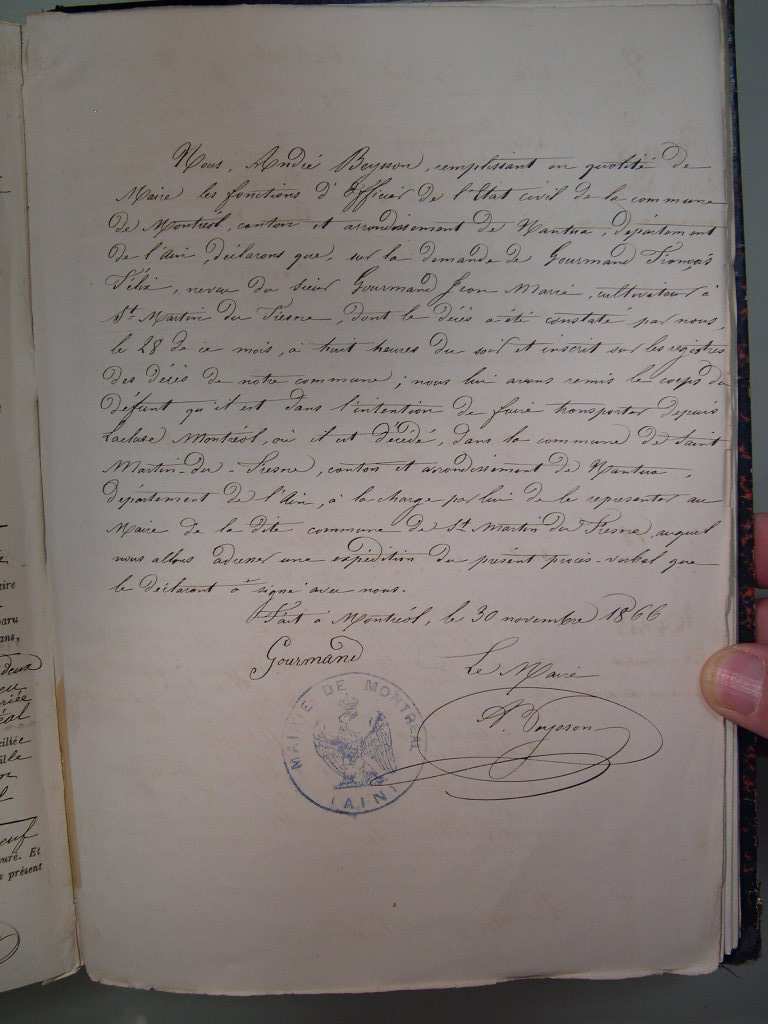 Nous, André Beysson, remplissant en qualité de
Maire les fonctions d'Officier de l'Etat civil de la commune
de Montréal, canton et arrondissement de Nantua, département
de l'Ain, déclarons que, sur la demande de Gourmand François
Félix, neveu du sieur Gourmand Jean Marie, cultivateur à
St. Martin du Fresne, dont le décès a été constaté par nous,
le 28 de ce mois, à huit heures du soir et inscrit sur les registres
des décès de notre commune ; nous lui avons remis le corps du
défunt qu'il est dans l'intention de faire transporter depuis
Lacluse Montréal, où il est décédé, dans la commune de Saint
Martin-du-Fresne, canton et arrondissement de Nantua,
département de l'Ain, à la charge par lui de le representer au
Maire de la dite commune de St Martin du Fresne, auquel
nous allons adresser une expédition du présent procès-verbal que
le déclarant a signé avec nous.
Fait à Montréal, le 30 novembre 1866
Gourmand
Le Maire
A. Beysson
MAIRIE DE MONTREAL
(AIN)
deux
éal
neuf
Et
présent